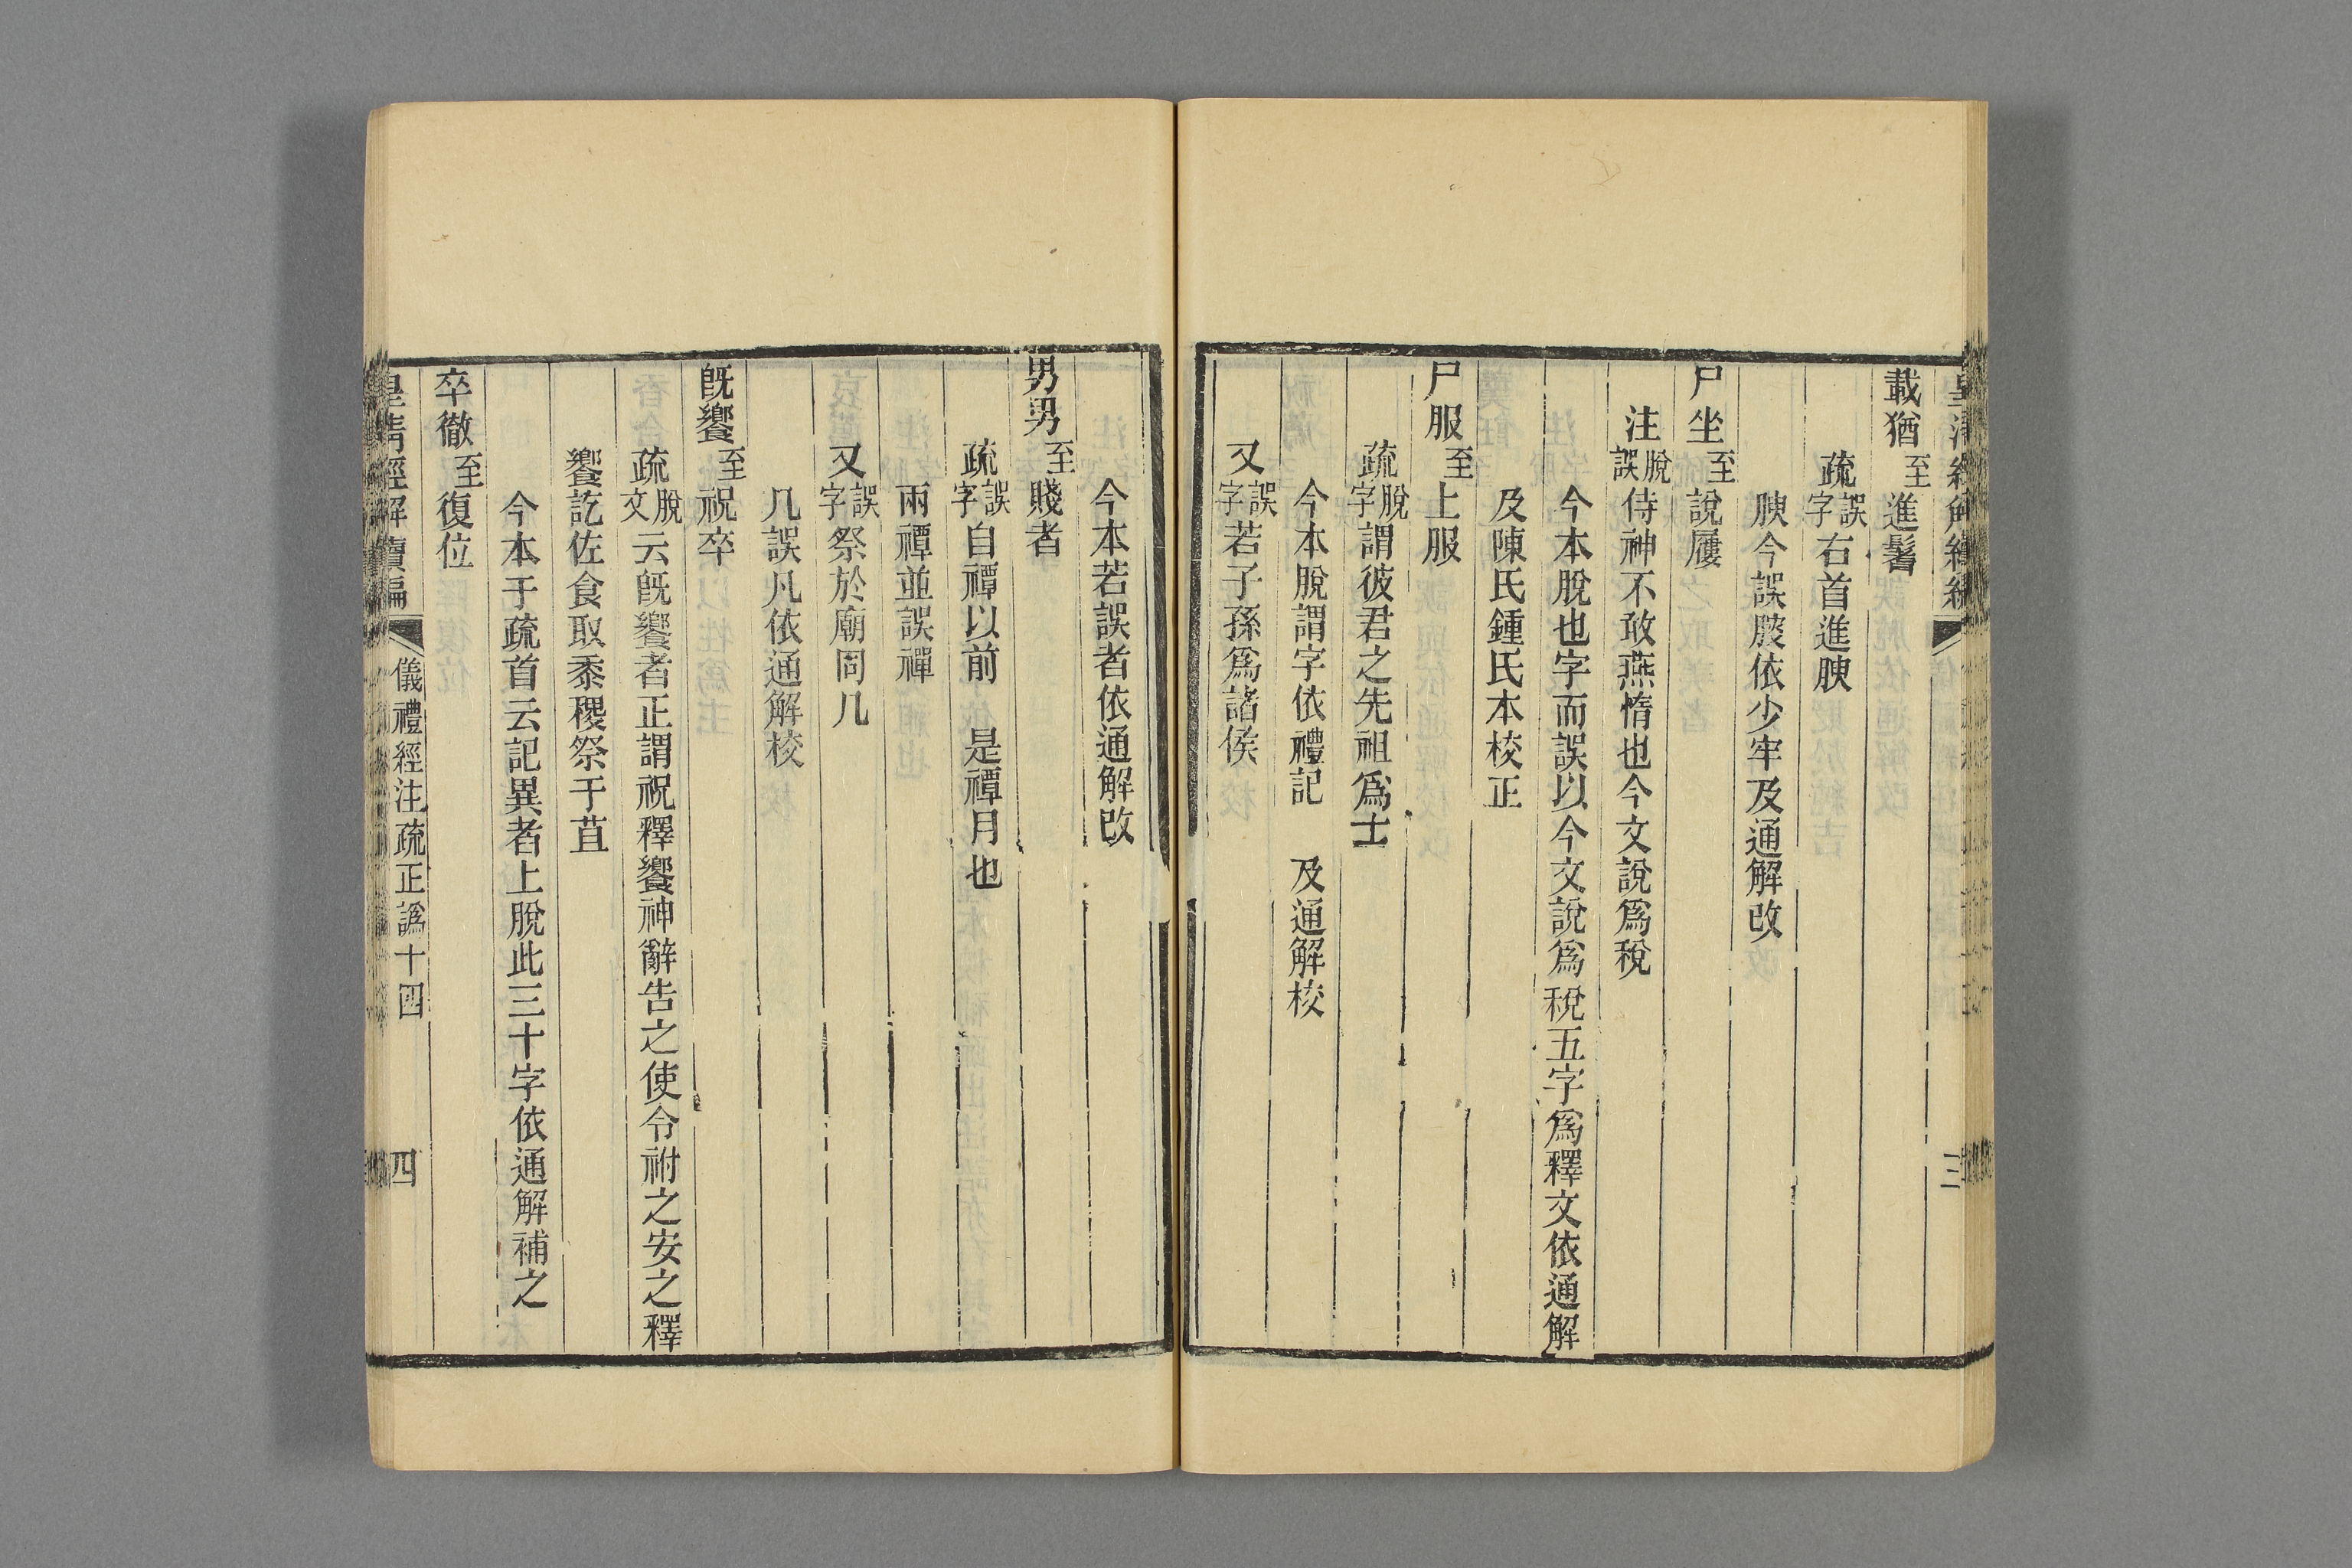 載猶至進鬐
疏誤字右首進腴
腴今誤腴依少牢及通解改
尸坐至說屨
注脫誤侍神不敢燕惰也今文說為稅
今本脫也字而誤以今文說為稅五字為釋文依通解
及陳氏鍾氏本校正
尸服至上服
疏脫字謂彼君之先祖為士
今本脫謂字依禮記　及通解校
又誤字若子孫為諸侯
三
今本若誤者依通解改
男男至賤者
疏誤字自禫以前　是禫月也
兩禫並誤禪
又誤字祭於廟同几
几誤凡依通解校
既饗至祝卒
疏脫文云既饗者正謂祝釋饗神辭告之使令祔之安之釋
饗訖佐食取黍稷祭于苴
今本于疏首云記異者上脫此三十字依通解補之
卒徹至復位
皇清經解續編　儀禮經注疏正譌十四　四